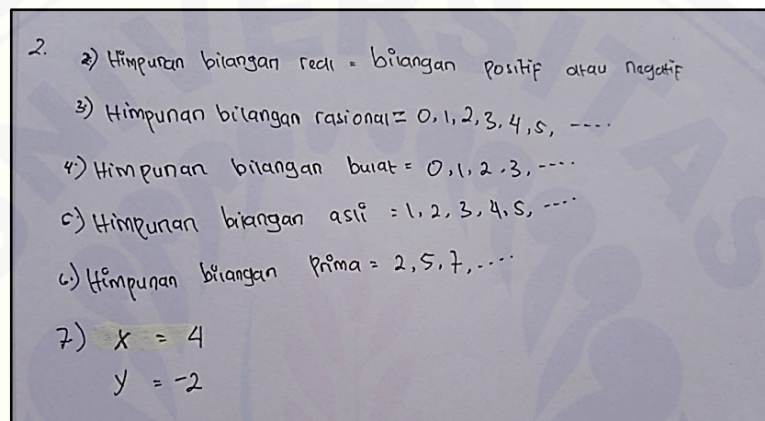 UNIVERSITAS
2. 2) Himpunan bilangan real = bilangan positif atau negatif
3) Himpunan bilangan rasional = 0, 1, 2, 3, 4, 5, ....
4.) Himpunan bilangan bulat = 0, 1, 2, 3, ....
5) Himpunan bilangan asli = 1, 2, 3, 4, 5, ....
6.) Himpunan bilangan prima = 2, 5, 7, ....
7) x = 4
y = -2